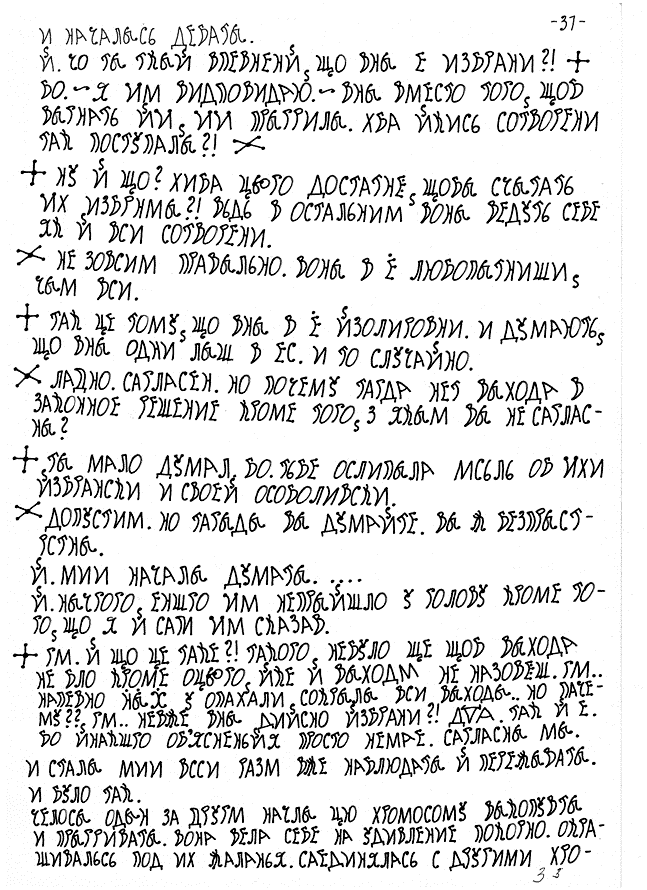 -37-
И НАЧАЛАСЬ ДЕБАТА.
Й. ЧО ТА ТКАЙ ВПЕВНЕНИЙ, ЩО ВНА Е ИЗБРАНИ?! +
БО.~ Я ИМ ВИДПОВИДАЮ.~ ВНА ВМЕСТО ТОГО, ЩОБ
ВАГНАТЬ ЙИ, ИИ ПРАГРИЛА. ХБА ЙКИСЬ СОТВОРЕНИ
ТАК ПОСТУПАЛА?! ×
+ НУ Й ЩО? ХИБА ЦЬОГО ДОСТАТНЕ, ЩОБА СЧАТАТЬ
ИХ ИЗБРНМА?! ВЕДЬ В ОСТАЛЬНИМ ВОНА ВЕДУТЬ СЕБЕ
ЯК Й ВСИ СОТВОРЕНИ.
× НЕ ЗОВСИМ ПРАВАЛЬНО. ВОНА В Ё ЛЮБОПАТНИШИ,
ЧАМ ВСИ.
+ ТАК ЦЕ ТОМУ, ЩО ВНА В Ё ЙЗОЛИРОВНИ. И ДУМАЮТЬ,
ЩО ВНА ОДНИ ЛАШ В ЕС. И ТО СЛУЧАЙНО.
× ЛАДНО. САГЛАСЕН. НО ПОЧЕМУ ТАГДА НЕТ ВАХОДА В
ЗАКОННОЕ РЕШЕНИЕ КРОМЕ ТОГО, З ЯКАМ ВА НЕ САГЛАС-
НА?
+ ТА МАЛО ДУМАЛ, БО. ТЬБЕ ОСЛИПАЛА МСЬЛЬ ОБ ИХИ
ЙЗБРАНСКИ И СВОЕЙ ОСОБОЛИВСКИ.
× ДОПУСТИМ. НО ТАГАДА ВА ДУМАЙТЕ. ВА Ж БЕЗПРАСТ-
РСТНА.
Й. МИИ НАЧАЛА ДУМАТА. ....
Й. НАЧТОГО, ЕНШТО ИМ НЕПРАЙШЛО У ГОЛОВУ КРОМЕ ТО-
ГО, ЩО Я Й САМ ИМ СКАЗАВ.
+ ГМ. Й ЩО ЦЕ ТАКЕ?! ТАКОГО, НЕБУЛО ЩЕ ЩОБ ВАХОДА
НЕ БЛО КРОМЕ ОЦЬОГО, ЙКЕ Й ВАХОДМ НЕ НАЗОВЕШ. ГМ..
НАПЕВНО НАХ У ОПАХАЛИ, СОКРАЛА ВСИ ВАХОДА.. НО ПАЧЕ-
МУ??, ГМ.. НЕВЖЕ ВНА ДИЙСНО ЙЗБРАНИ?! ДА. ТАК Й Е.
БО ЙНАКШТО ОБЯСНЕНЬЙЯ ПРОСТО НЕМАЕ. САГЛАСНА МА.
И СТАЛА МИИ ВССИ РАЗМ ВЖЕ НАБЛЮДАТА Й ПЕРЕЖАВАТА.
И БУЛО ТАК.
ЧЕЛОСА ОДАН ЗА ДРУГМ НАЧЛА ЦЮ ХРОМОСОМУ ВАКОПУВТА
И ПРАГРИВАТА. ВОНА ВЕЛА СЕБЕ НА УДИВЛЕНИЕ ПОКОРНО. ОКРА-
ШИВАЛЬСЬ ПОД ИХ ЖАЛАНЬЯ. САЕДИНЯЛАСЬ С ДРУГИМИ ХРО-